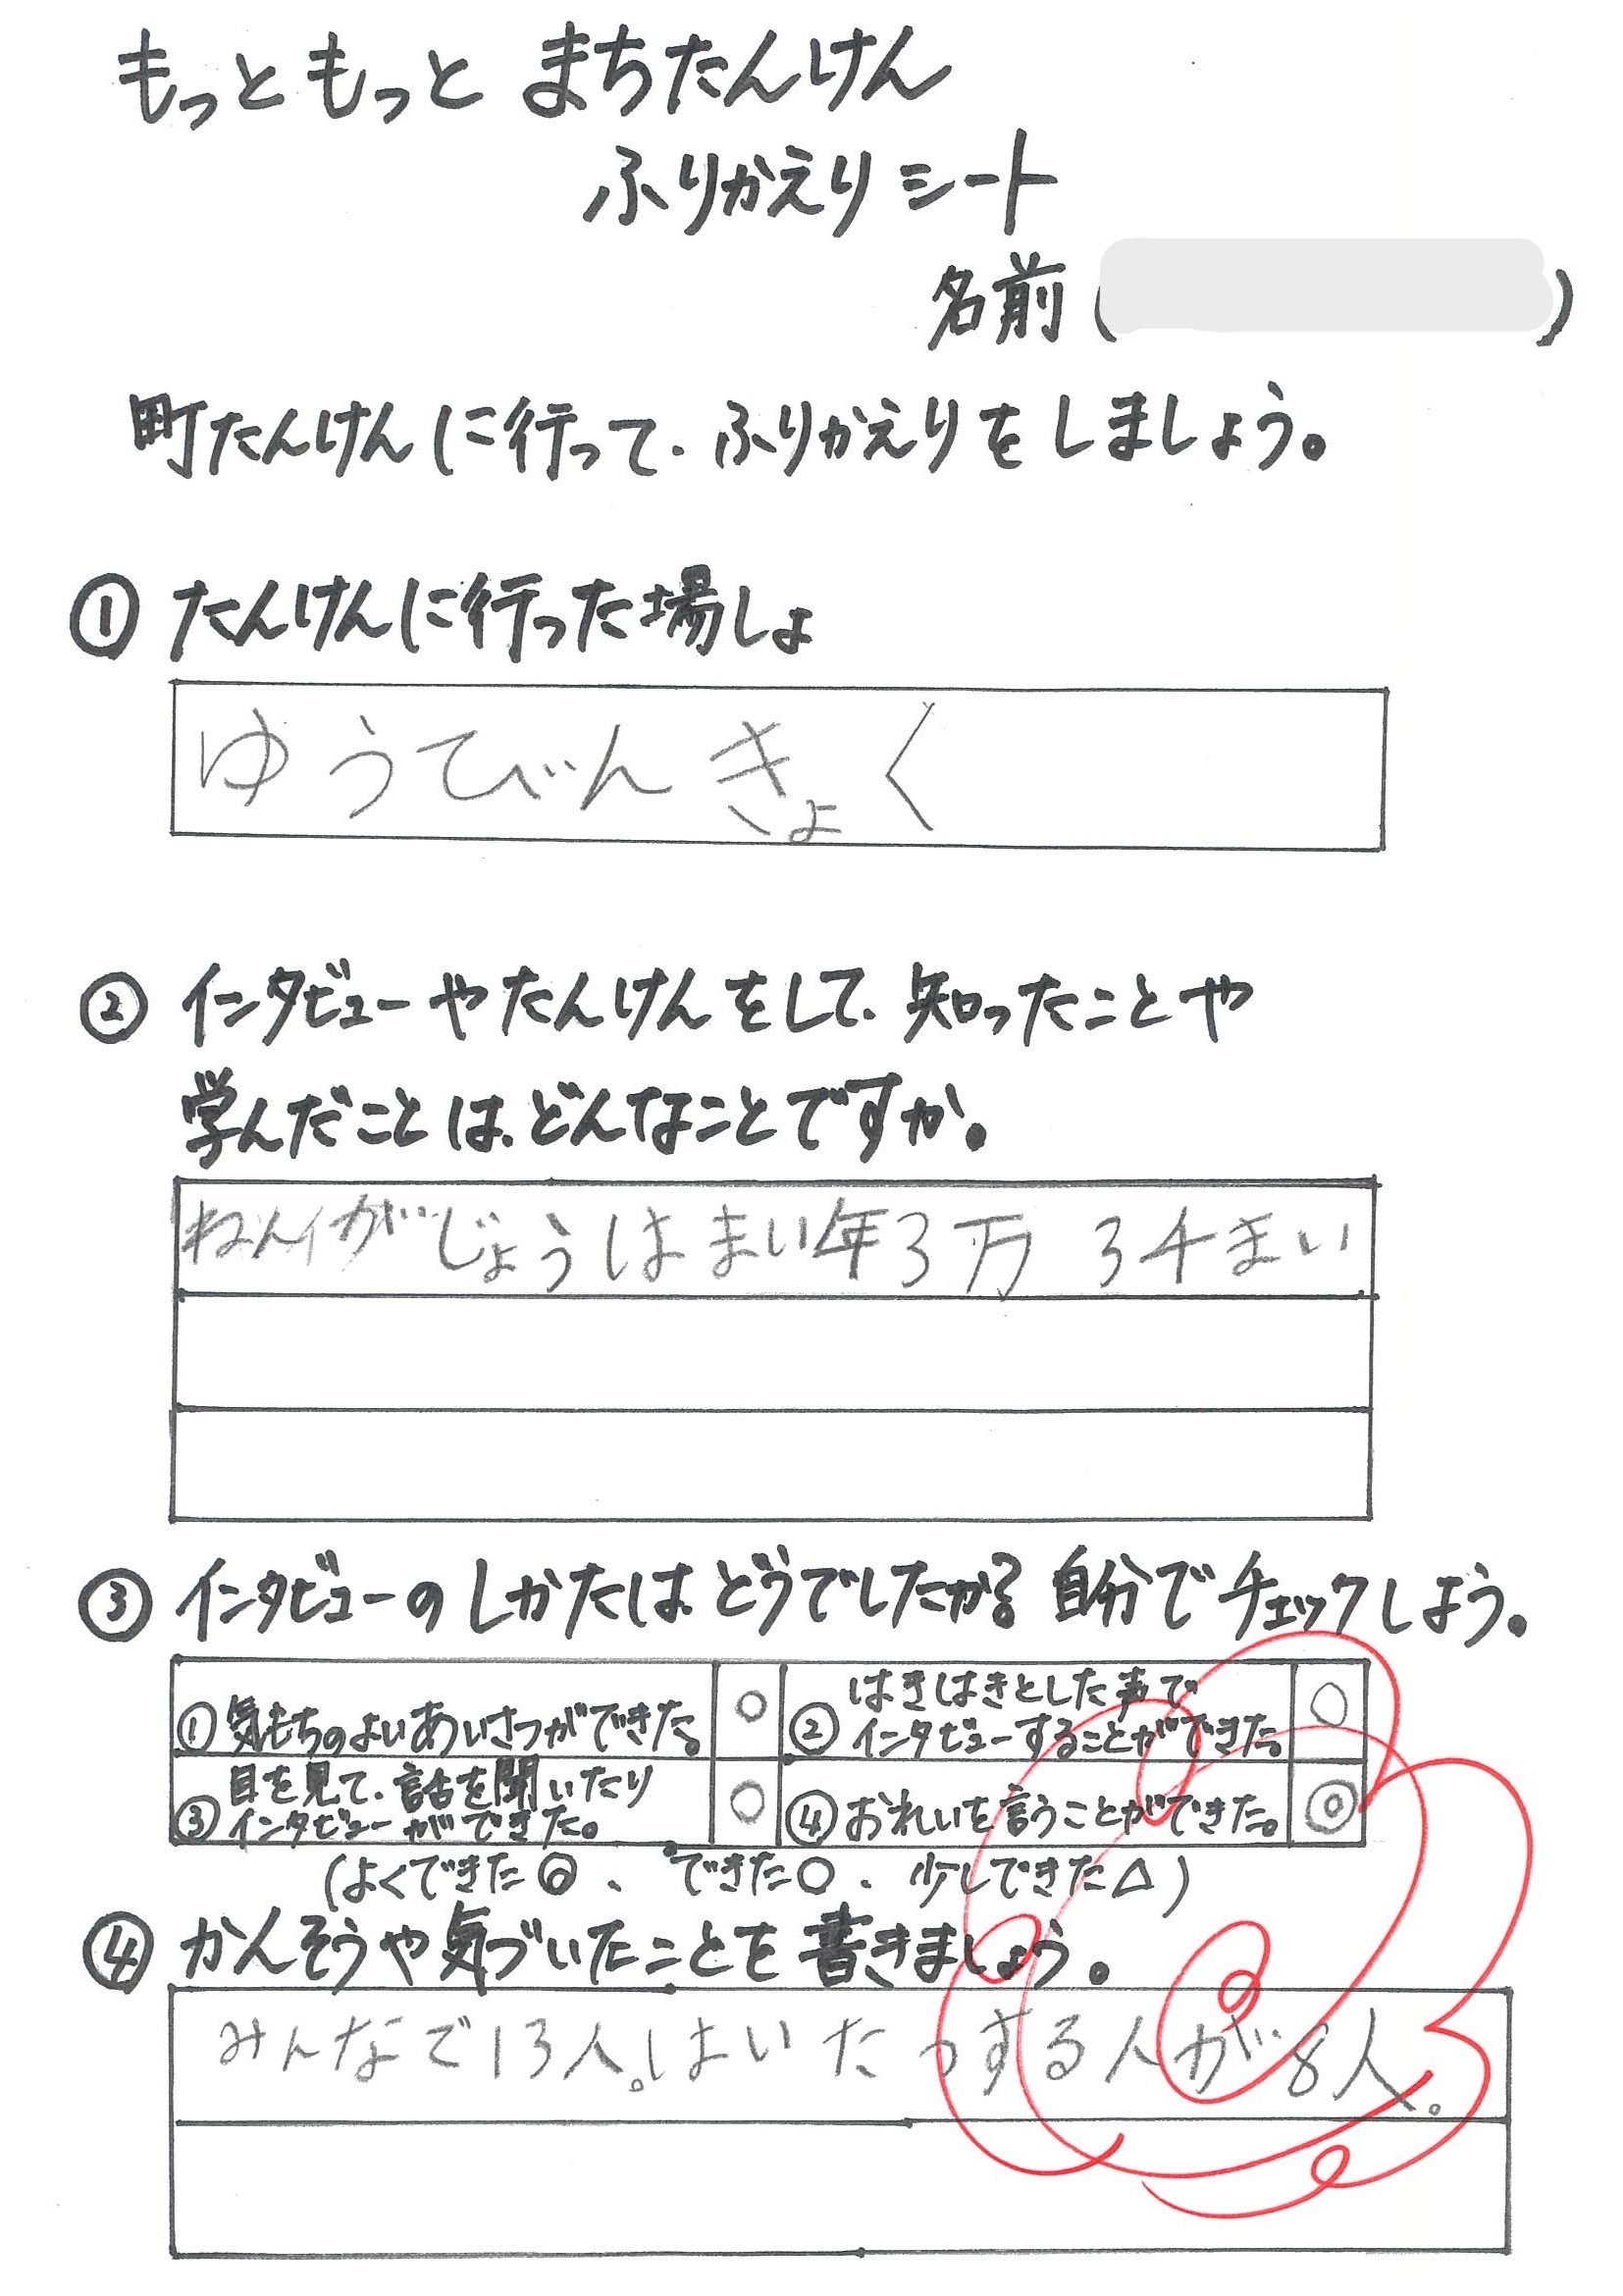 もっともっと まちたんけん
ふりかえりシート
名前( )
町たんけんに行って、ふりかえりをしましょう。
① たんけんに行った場しょ
ゆうびんきょく
② インタビューやたんけんをして、知ったことや
学んだことは、どんなことですか。
ねんがじょうはまい年3万3千まい
③ インタビューのしかたは、どうでしたか?自分でチェックしよう。
①気もちのよいあいさつができた。 ○
②はきはきとした声で
インタビューすることができた。 ○
③目を見て、話を聞いたり
インタビューができた。 ○
④おれいを言うことができた。 ◎
(よくできた◎、できた○、少しできた△)
④ かんそうや気づいたことを書きましょう。
みんなで13人。はいたつする人が8人。